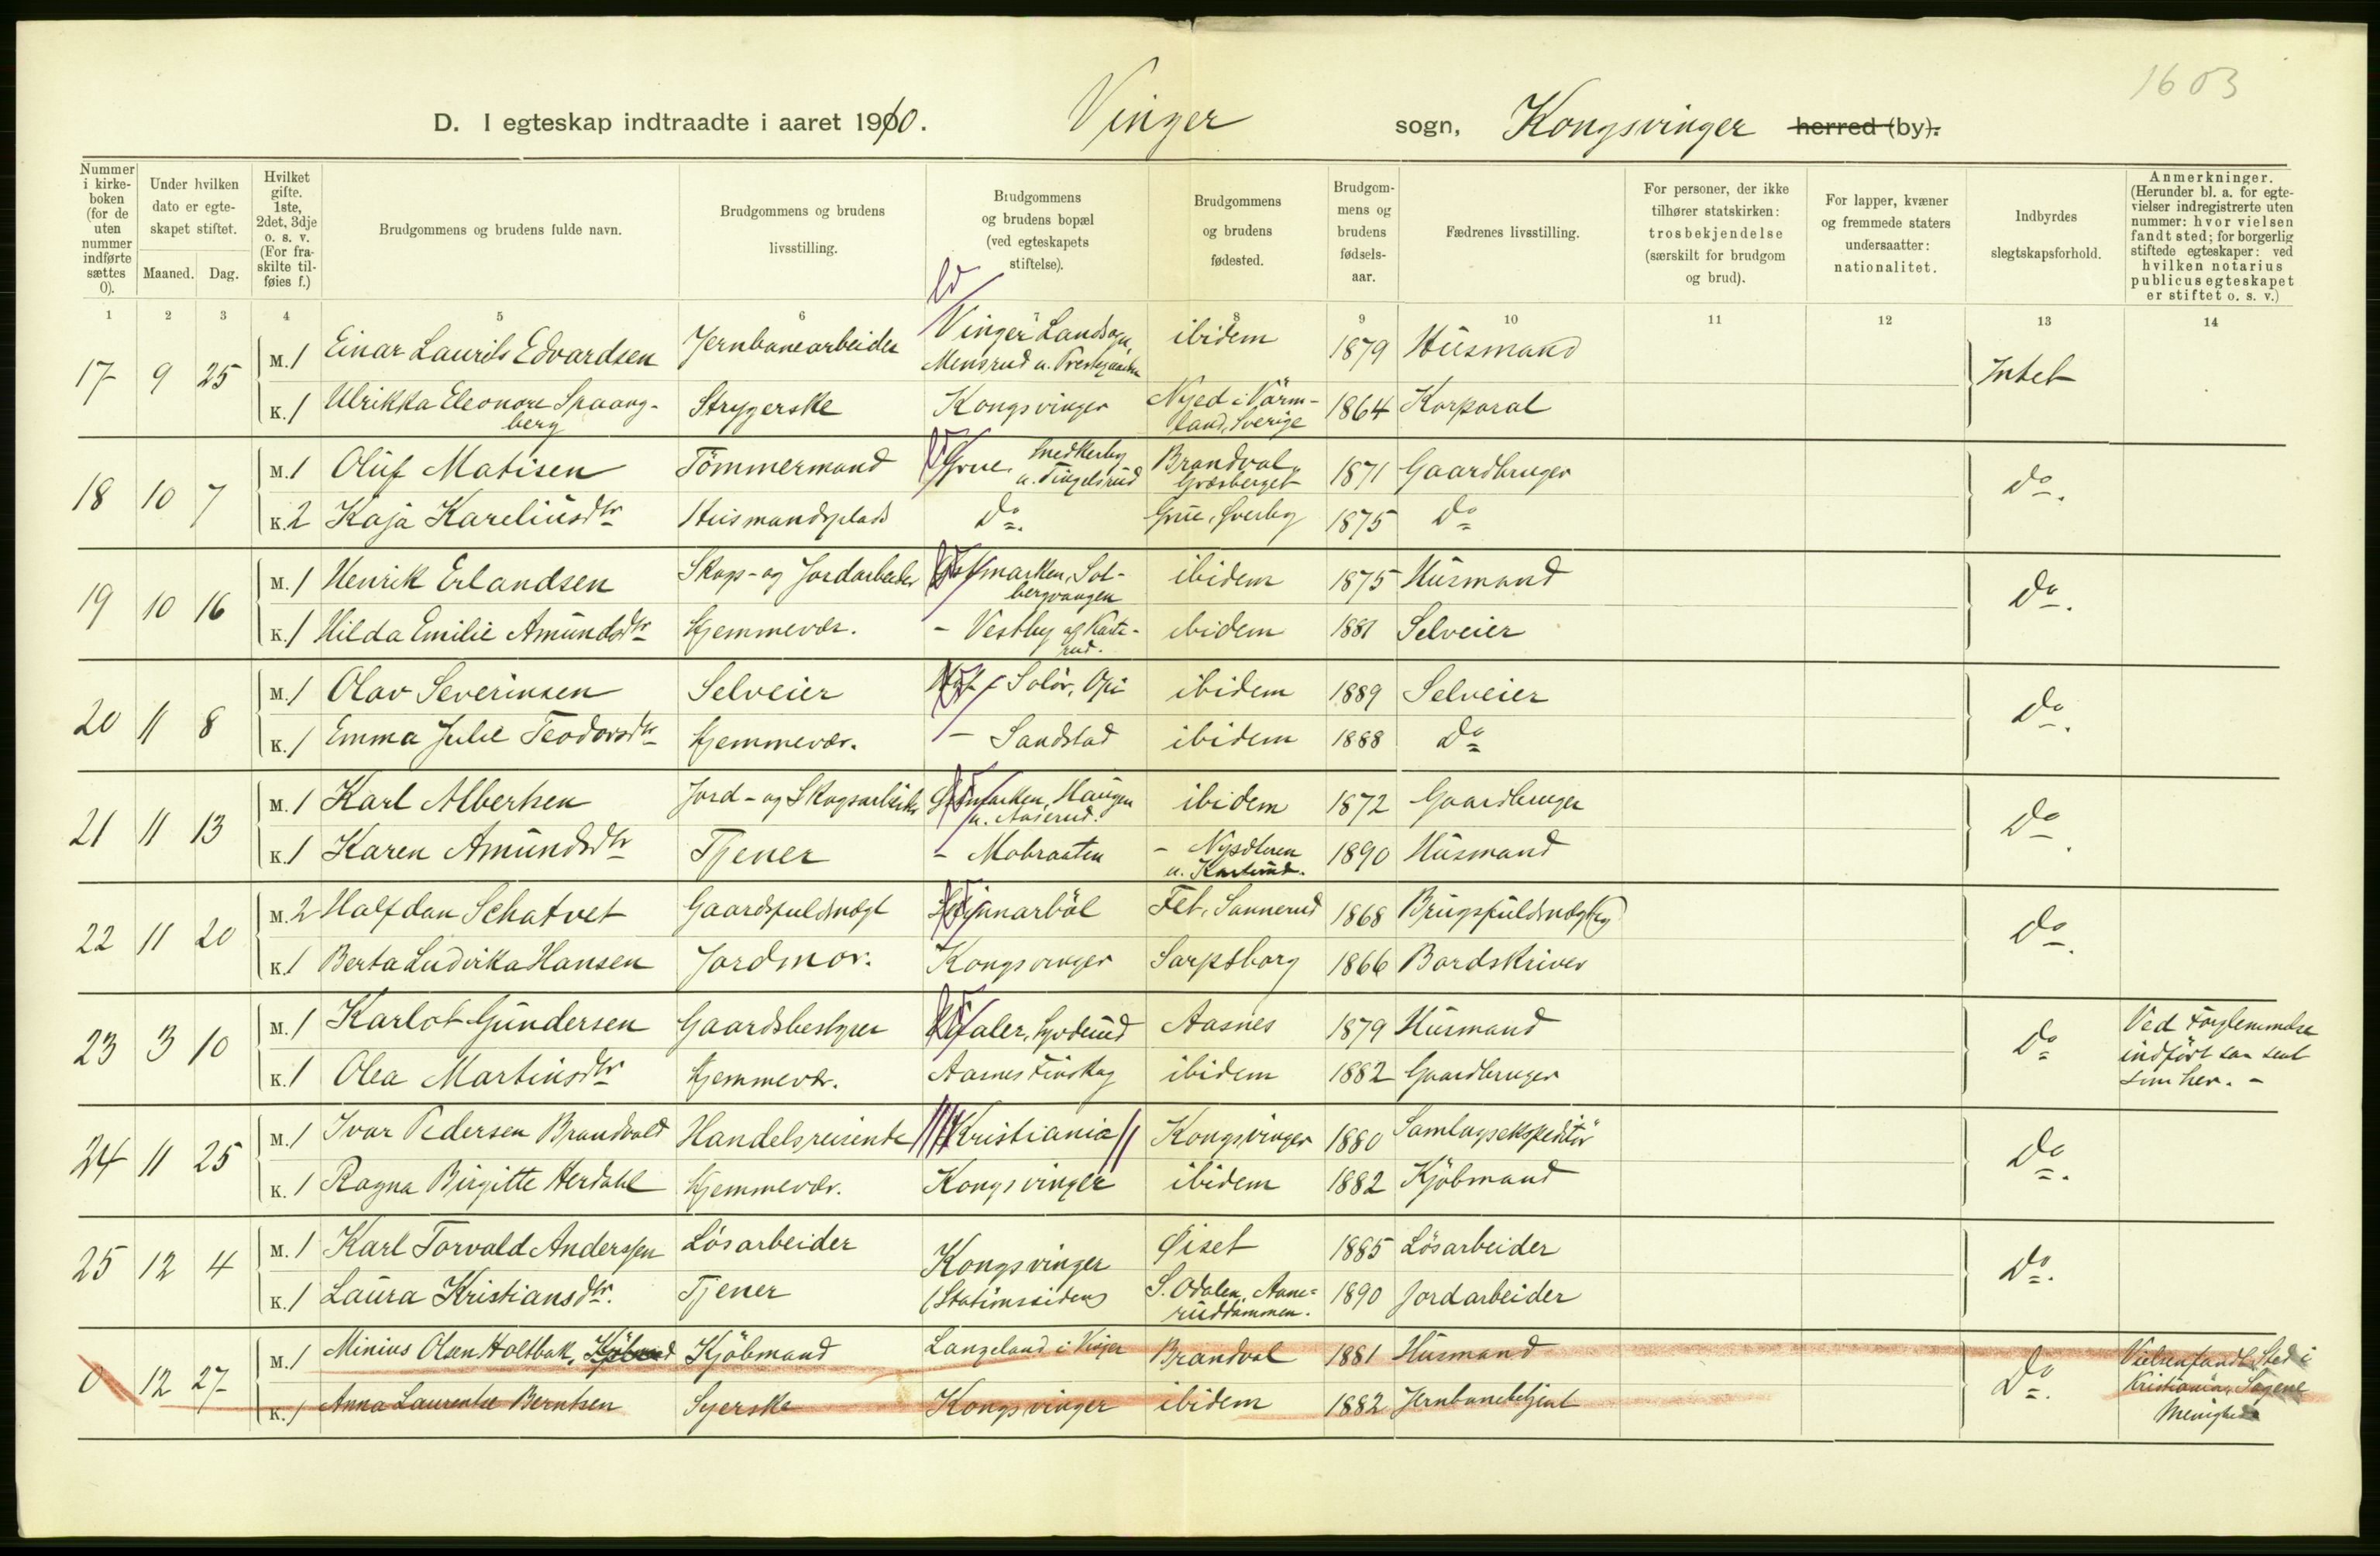 1603
D. I egteskap indtraadte i aaret 1910. Vinger sogn, Kongsvinger herred (by).
Nummer i kirkeboken (for de uten nummer indførte sættes 0).
Under hvilken dato er egteskapet stiftet.
Maaned. Dag.
Hvilket gifte. 1ste, 2det, 3dje o. s. v. (For fraskilte tilføies f.)
Brudgommens og brudens fulde navn.
Brudgommens og brudens livsstilling.
Brudgommens og brudens bopæl (ved egteskapets stiftelse).
Brudgommens og brudens fødested.
Brudgommens og brudens fødselsaar.
Fædrenes livsstilling.
For personer, der ikke tilhører statskirken: trosbekjendelse (særskilt for brudgom og brud).
For lapper, kvæner og fremmede staters undersaatter: nationalitet.
Indbyrdes slegtskapsforhold.
Anmerkninger. (Herunder bl. a. for egtevielser indregistrerte uten nummer: hvor vielsen fandt sted; for borgerlig stiftede egteskaper: ved hvilken notarius publicus egteskapet er stiftet o. s. v.)
1 2 3 4 5 6 7 8 9 10 11 12 13 14
17 9 25 M. 1 Einar Laurits Edvardsen Jernbanearbeider Vinger Landsogn, Mensrud u. Prestegaarden ibidem 1879 Husmand Intet
K. 1 Ulrikka Eleonore Spaangberg Strygerske Kongsvinger Nyed i Värmland, Sverige 1864 Korporal
18 10 7 M. 1 Oluf Matisen Tömmermand Grue, Snedkerby u. Tingelsrud Brandval, Græsberget 1871 Gaardbruger Do.
K. 2 Kaja Kareliusdtr Husmandsplads Do. Grue, Sverby 1875 Do
19 10 16 M. 1 Henrik Erlandsen Skogs- og Jordarbeider Solbergvangen ibidem 1875 Husmand Do.
K. 1 Hilda Emilie Amundsdtr Hjemmevær. - Vestby af Kasterud. ibidem 1881 Selveier
20 11 8 M. 1 Olav Severinsen Selveier Hof i Solör, Opi ibidem 1889 Selveier Do.
K. 1 Emma Julie Teodorsdtr Hjemmevær. - Sandstad ibidem 1888 Do
21 11 13 M. 1 Karl Albertsen Jord- og Skogsarbeider Haugen u. Aaserud. ibidem 1872 Gaardbruger Do.
K. 1 Karen Amundsdtr Tjener - Mobraaten - Nysæteren u. 1890 Husmand
22 11 20 M. 2 Halfdan Schatvet Gaardsfuldmægt Fet, Sannerud 1868 Brugsfuldmægtig Do.
K. 1 Berta Ludvika Hansen Jordmor. Kongsvinger Sarpsborg 1866 Bordskriver
23 3 10 M. 1 Karlot Gundersen Gaardsbestyrer Vaaler, Aasnes 1879 Husmand Do Ved Forglemmelse indført saa sent som her. -
K. 1 Olea Martinsdtr Hjemmevær. Aasnes Finskog ibidem 1882 Gaardbruger
24 11 25 M. 1 Ivar Pedersen Brandvold Handelsreisende Kristiania Kongsvinger 1880 Samlagsekspeditör Do.
K. 1 Ragna Birgitte Herdahl Hjemmevær. Kongsvinger ibidem 1882 Kjöbmand
25 12 4 M. 1 Karl Torvald Anderssen Lösarbeider Kongsvinger Øiset 1885 Lösarbeider Do.
K. 1 Laura Kristiansdtr. Tjener (Stationssiden) S. Odalen, Aaneruddammen. 1890 Jordarbeider
0 12 27 M. 1 Minius Olsen Holtbak, Kjöbmand Kjöbmand Langeland i Vinger Brandval 1881 Husmand Do. Vielsen fandt Sted i Kristiania, Sagene Menighed
K. 1 Anna Laurentse Berntsen Syerske Kongsvinger ibidem 1882 Jernbanebetjent